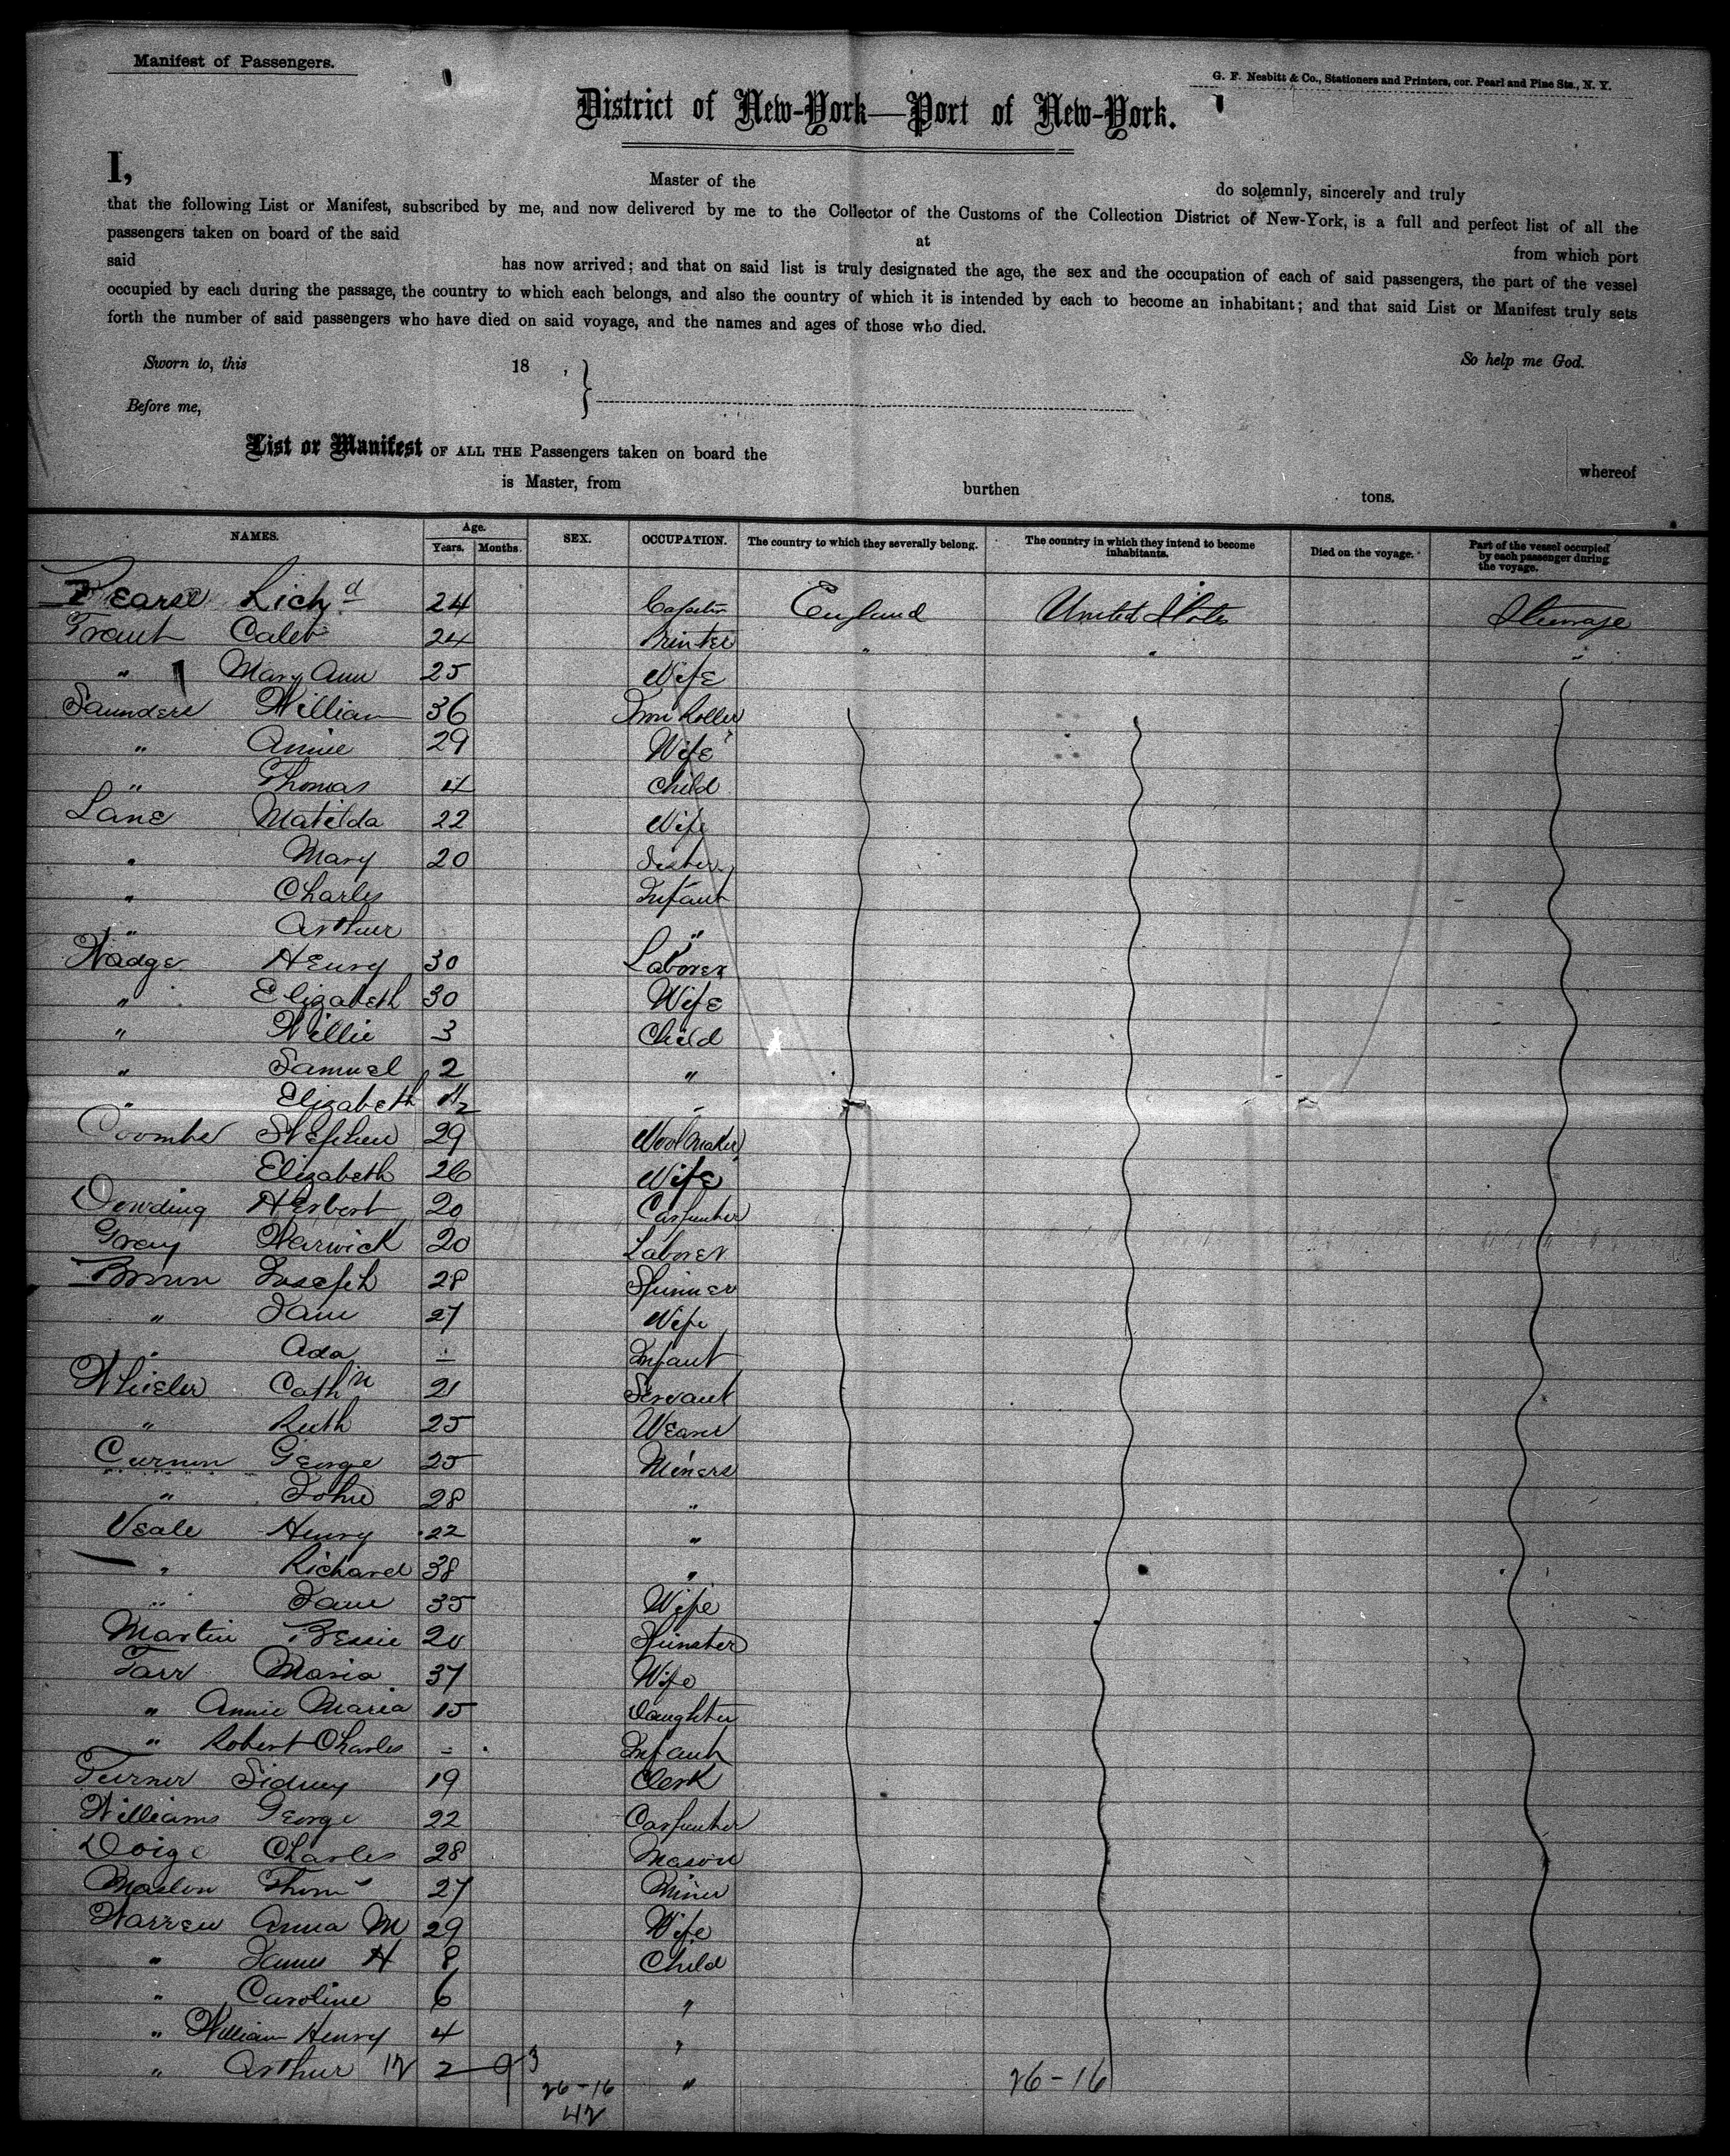 Manifest of Passengers.
G. F. Nesbitt & Co., Stationers and Printers, cor. Pearl and Pine Sts., N. Y.
District of New-York—Port of New-York.
I, Master of the do solemnly, sincerely and truly
that the following List or Manifest, subscribed by me, and now delivered by me to the Collector of the Customs of the Collection District of New-York, is a full and perfect list of all the
passengers taken on board of the said at from which port
said has now arrived; and that on said list is truly designated the age, the sex and the occupation of each of said passengers, the part of the vessel
occupied by each during the passage, the country to which each belongs, and also the country of which it is intended by each to become an inhabitant; and that said List or Manifest truly sets
forth the number of said passengers who have died on said voyage, and the names and ages of those who died.
Sworn to, this 18 , So help me God.
Before me,
List or Manifest OF ALL THE Passengers taken on board the whereof
is Master, from burthen tons.
NAMES. Age. Years. Months. SEX. OCCUPATION. The country to which they severally belong. The country in which they intend to become inhabitants. Died on the voyage. Part of the vessel occupied by each passenger during the voyage.
Pearse Richd 24 England United States Steerage
Grant Caleb 24 Printer " " "
" Mary Ann 25 Wife
Saunders William 36 Iron Roller
" Annie 29 Wife
" Thomas 4 Child
Lane Matilda 22 Wife
" Mary 20 Sister
" Charles Infant
" Arthur "
Wadge Henry 30 Laborer
" Elizabeth 30 Wife
" Willie 3 Child
" Samuel 2 "
" Elizabeth 1/2 "
Coombe Stephen 29 Wool Maker
Elizabeth 26 Wife
Dowding Herbert 20 Carpenter
Grey Warwick 20 Laborer
Brown Joseph 28 Spinner
" Jane 27 Wife
" Ada - Infant
Wheeler Cathn 21 Servant
" Ruth 25 Weaver
Curnon George 25 Miners
" John 28 "
Veale Henry 22 "
" Richard 38 "
" Jane 35 Wife
Martin Bessie 20 Spinster
Tarr Maria 37 Wife
" Annie Maria 15 Daughter
" Robert Charles - Infant
Turner Sidney 19 Clerk
Williams George 22 Carpenter
Doige Charles 28 Mason
Maslon Thoms 27 Miner
Warren Anna M 29 Wife
" James H 8 Child
" Caroline 6 "
" William Henry 4 "
" Arthur 2 "
26-16 26-16
42